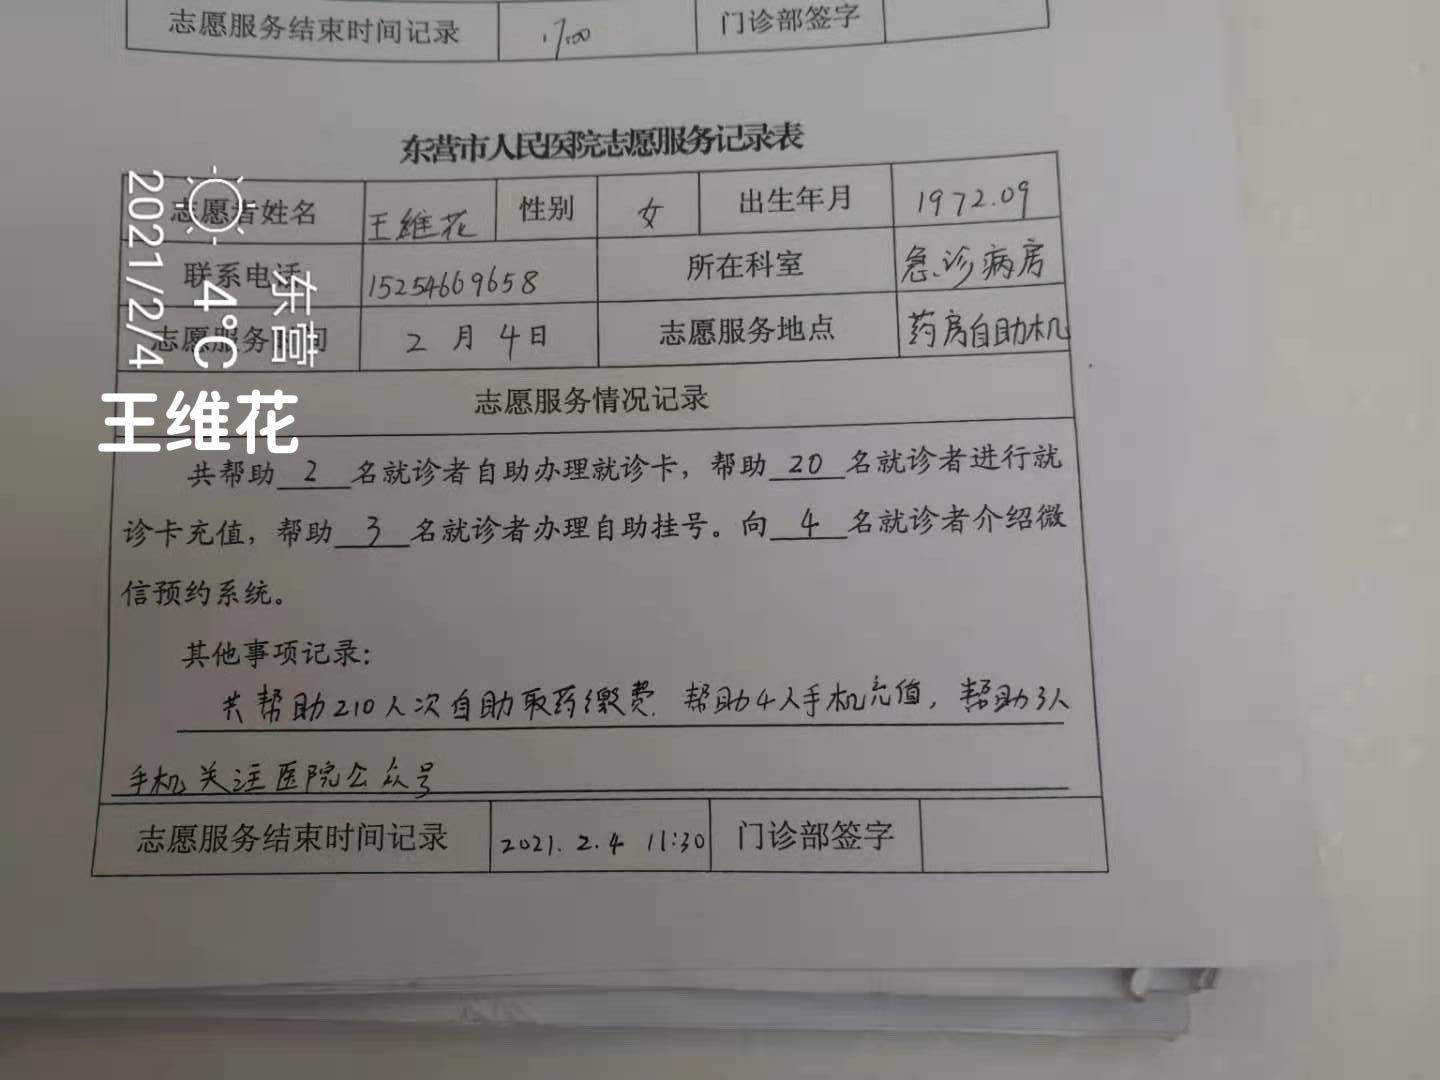 志愿服务结束时间记录 17:00 门诊部签字
东营市人民医院志愿服务记录表
志愿者姓名 王维花 性别 女 出生年月 1972.09
联系电话 15254669658 所在科室 急诊病房
志愿服务时间 2月4日 志愿服务地点 药房自助机
志愿服务情况记录
共帮助 2 名就诊者自助办理就诊卡，帮助 20 名就诊者进行就
诊卡充值，帮助 3 名就诊者办理自助挂号。向 4 名就诊者介绍微
信预约系统。
其他事项记录：
共帮助210人次自助取药缴费. 帮助4人手机充值，帮助3人
手机关注医院公众号
志愿服务结束时间记录 2021.2.4 11:30 门诊部签字
2021/2/4
4℃
东营
王维花